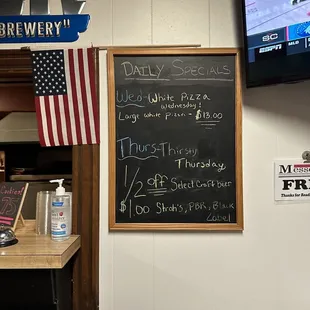 BREWERY
DAILY SPECIALS
Wed-White Pizza
Wednesday!
Large white pizza - $13.00
Thurs-Thirsty
Thursday
1/2 off Select Craft beer
$1.00 Stroh's, PBR, Black
Label
SC
ESPN
Mess
FR
Thanks for Read